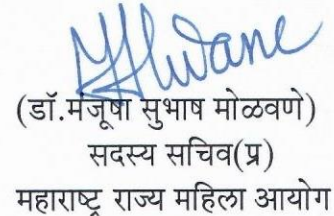 (डॉ.मंजूषा सुभाष मोळवणे)
सदस्य सचिव(प्र)
महाराष्ट्र राज्य महिला आयोग